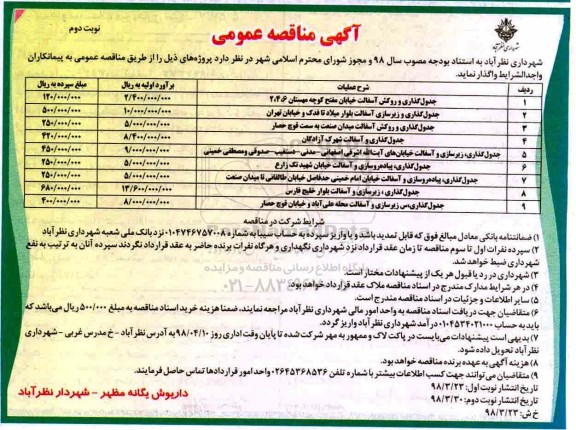 نوبت دوم
آگهی مناقصه عمومی
شهرداری نظرآباد
شهرداری نظرآباد به استناد بودجه مصوب سال ۹۸ و مجوز شورای محترم اسلامی شهر در نظر دارد پروژه‌های ذیل را از طریق مناقصه عمومی به پیمانکاران
واجدالشرایط واگذار نماید.
ردیف شرح عملیات برآورد اولیه به ریال مبلغ سپرده به ریال
۱ جدول‌گذاری و روکش آسفالت خیابان مفتح کوچه مهستان ۲،۴،۶ ۲/۴۰۰/۰۰۰/۰۰۰ ۱۲۰/۰۰۰/۰۰۰
۲ جدول‌گذاری و زیرسازی آسفالت بلوار میلاد تا فدک و خیابان تهران ۱۰/۰۰۰/۰۰۰/۰۰۰ ۵۰۰/۰۰۰/۰۰۰
۳ جدول‌گذاری و روکش آسفالت میدان صنعت به سمت قوچ حصار ۵/۰۰۰/۰۰۰/۰۰۰ ۲۵۰/۰۰۰/۰۰۰
۴ جدول‌گذاری و آسفالت شهرک آزادگان ۸/۴۰۰/۰۰۰/۰۰۰ ۴۲۰/۰۰۰/۰۰۰
۵ جدول‌گذاری، زیرسازی و آسفالت خیابان‌های آیت‌الله اشرفی اصفهانی - مدنی - دستغیب - صدوقی و مصطفی خمینی ۹/۰۰۰/۰۰۰/۰۰۰ ۴۵۰/۰۰۰/۰۰۰
۶ جدول‌گذاری، پیاده‌روسازی و آسفالت خیابان شهید تک زارع ۵/۰۰۰/۰۰۰/۰۰۰ ۲۵۰/۰۰۰/۰۰۰
۷ جدول‌گذاری، پیاده‌روسازی و آسفالت خیابان امام خمینی حدفاصل خیابان طالقانی تا میدان صنعت ۵/۰۰۰/۰۰۰/۰۰۰ ۲۵۰/۰۰۰/۰۰۰
۸ جدول‌گذاری، زیرسازی و آسفالت بلوار خلیج فارس ۱۳/۶۰۰/۰۰۰/۰۰۰ ۶۸۰/۰۰۰/۰۰۰
۹ جدول‌گذاری، زیرسازی و آسفالت محله علی‌آباد و خیابان قوچ حصار ۸/۰۰۰/۰۰۰/۰۰۰ ۴۰۰/۰۰۰/۰۰۰
شرایط شرکت در مناقصه
۱) ضمانتنامه بانکی معادل مبالغ فوق که قابل تمدید باشد و یا واریز سپرده به حساب سیبا به شماره ۰۱۰۷۴۶۷۵۷۰۰۸ نزد بانک ملی شعبه شهرداری نظرآباد
۲) سپرده نفرات اول تا سوم مناقصه تا زمان عقد قرارداد نزد شهرداری نگهداری و هرگاه نفرات برنده حاضر به عقد قرارداد نگردند سپرده آنان به ترتیب به نفع
شهرداری ضبط خواهد شد.
۳) شهرداری در رد یا قبول هر یک از پیشنهادات مختار است.
۴) در هر شرایط مدارک مندرج در اسناد مناقصه ملاک عقد قرارداد خواهد بود.
۵) سایر اطلاعات و جزئیات در اسناد مناقصه مندرج است.
۶) متقاضیان جهت دریافت اسناد مناقصه به واحد امور مالی شهرداری نظرآباد مراجعه نمایند، ضمنا هزینه خرید اسناد مناقصه به مبلغ ۵۰۰/۰۰۰ ریال می‌باشد که
باید به حساب ۰۱۰۴۵۳۴۰۲۱۰۰۰ درآمد شهرداری نظرآباد واریز گردد.
۷) بدیهی است پیشنهادات می‌بایست در پاکت لاک و ممهور به مهر شرکت شده تا پایان وقت اداری روز ۹۸/۰۴/۱۰ به آدرس نظرآباد - خ مدرس غربی - شهرداری
نظرآباد تحویل داده شود.
۸) هزینه آگهی به عهده برنده مناقصه خواهد بود.
۹) متقاضیان می‌توانند جهت کسب اطلاعات بیشتر با شماره تلفن ۰۲۶۴۵۳۶۸۵۳۶ واحد امور قراردادها تماس حاصل فرمایند.
تاریخ انتشار نوبت اول: ۹۸/۳/۲۳
تاریخ انتشار نوبت دوم: ۹۸/۳/۳۰
خ ش: ۹۸/۳/۲۳
داریوش یگانه مظهر - شهردار نظرآباد
پایگاه اطلاع رسانی مناقصه و مزایده